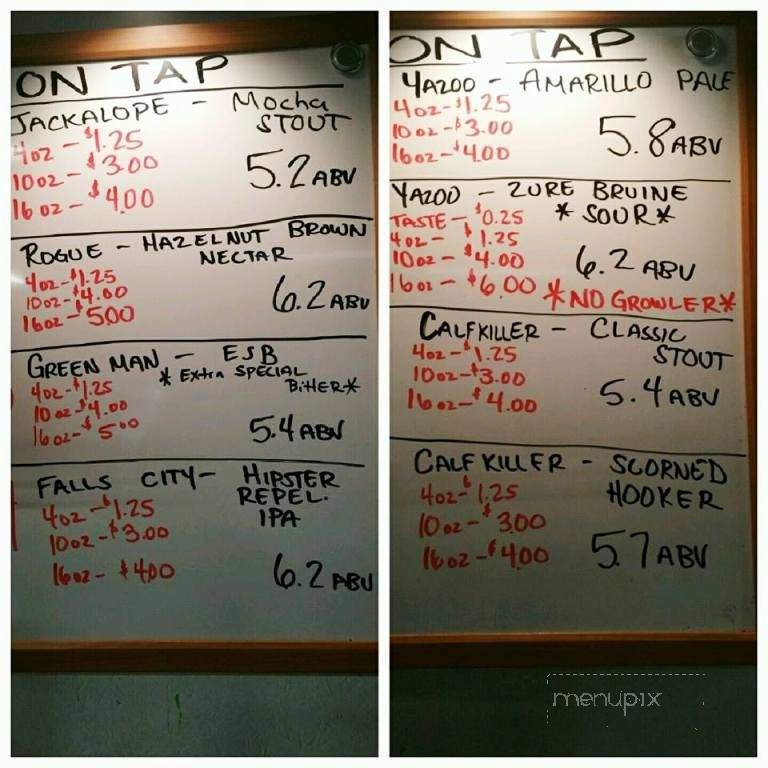 ON TAP
JACKALOPE - Mocha
STOUT
4oz - $1.25
10oz - $3.00
16oz - $4.00
5.2 ABV
ROGUE - HAZELNUT BROWN
NECTAR
4oz - $1.25
10oz - $4.00
16oz - $5.00
6.2 ABV
GREEN MAN - ESB
* Extra SPECIAL
BittER *
4oz - $1.25
10oz - $4.00
16oz - $5.00
5.4 ABV
FALLS CITY - HIPSTER
REPEL.
IPA
4oz - $1.25
10oz - $3.00
16oz - $4.00
6.2 ABV
ON TAP
YAZOO - AMARILLO PALE
4oz - $1.25
10oz - $3.00
16oz - $4.00
5.8 ABV
YAZOO - ZURE BRUINE
* SOUR *
TASTE - $0.25
4oz - $1.25
10oz - $4.00
16oz - $6.00
6.2 ABV
* NO GROWLER *
CALFKILLER - CLASSIC
STOUT
4oz - $1.25
10oz - $3.00
16oz - $4.00
5.4 ABV
CALFKILLER - SCORNED
HOOKER
4oz - $1.25
10oz - $3.00
16oz - $4.00
5.7 ABV
menupix